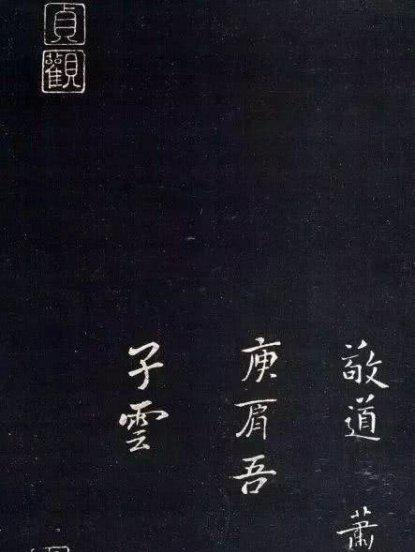 敬道 蕭
庾肩吾
子雲
貞
觀